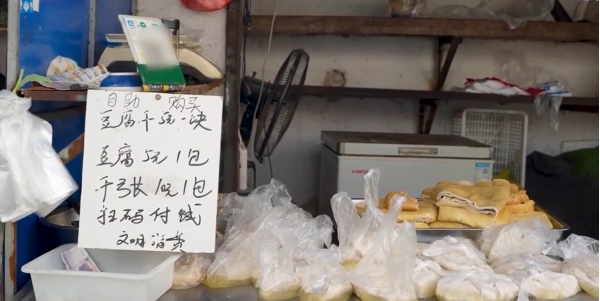 自助 购买
豆腐干5元一块
豆腐5元1包
千张1元1包
扫码付钱
文明消费